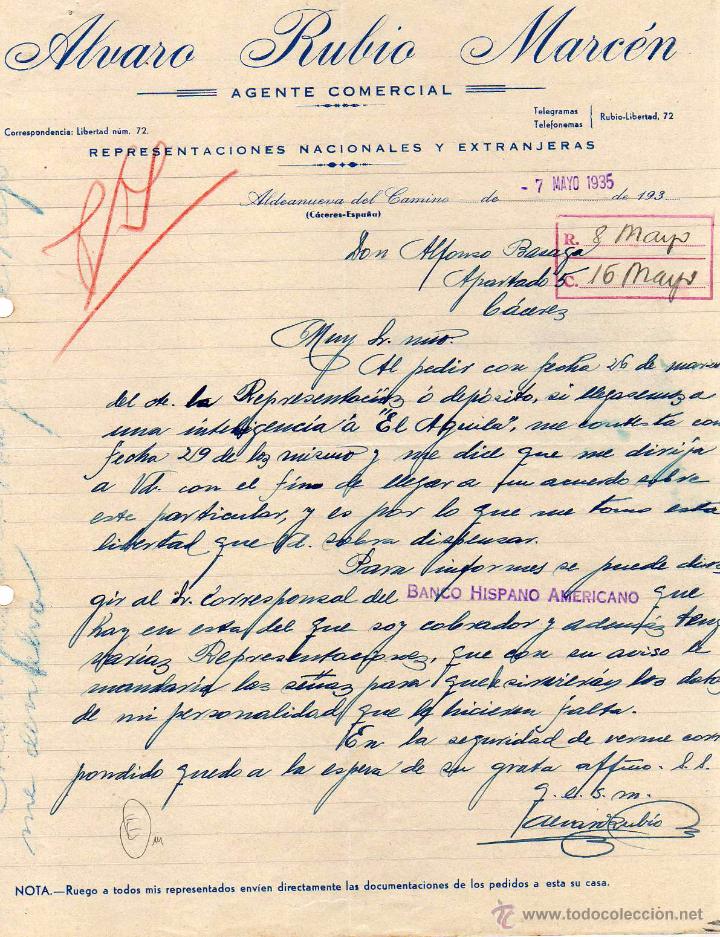 Alvaro Rubio Marcén
AGENTE COMERCIAL
Telegramas
Telefonemas
Rubio-Libertad, 72
Correspondencia: Libertad núm. 72.
REPRESENTACIONES NACIONALES Y EXTRANJERAS
Aldeanueva del Camino de - 7 MAYO 1935 de 193
(Cáceres-España)
R. 8 Mayo
C. 16 Mayo
Don Alfonso Basaga
Apartado 5
Cácerez
Muy Sr. mio.
Al pedir con fecha 26 de marzo
del cte. la Representación ó depósito, si llegasemos a
una inteligencia á "El Aguila", me contesta con
fecha 29 de los mismo y me dice que me dirija
a Vd. con el fin de llegar a un acuerdo sobre
este particular, y es por lo que me tomo esta
libertad que d. sabra dispensar.
Para informes se puede diri
gir al Sr. Corresponsal del BANCO HISPANO AMERICANO que
hay en esta del que soy cobrador y además teng
variaz Representacionez, que con su aviso le
mandaria las señaz para que le sirvieran los dato
de mi personalidad que le hiciesen falta.
En la seguridad de verme corres
pondido quedo a la espera de su grata affmo. S. S.
q. e. s. m.
Alvaro Rubio
me
NOTA.—Ruego a todos mis representados envíen directamente las documentaciones de los pedidos a esta su casa.
www.todocoleccion.net